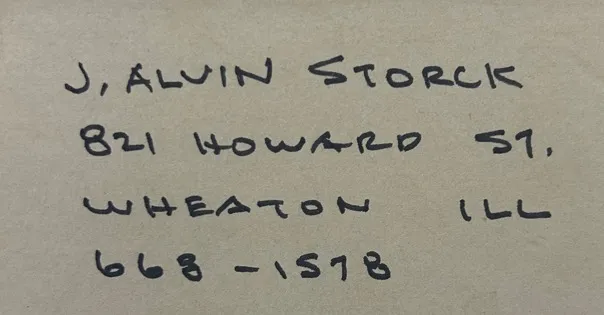 J. ALVIN STORCK
821 HOWARD ST.
WHEATON ILL
668-1578